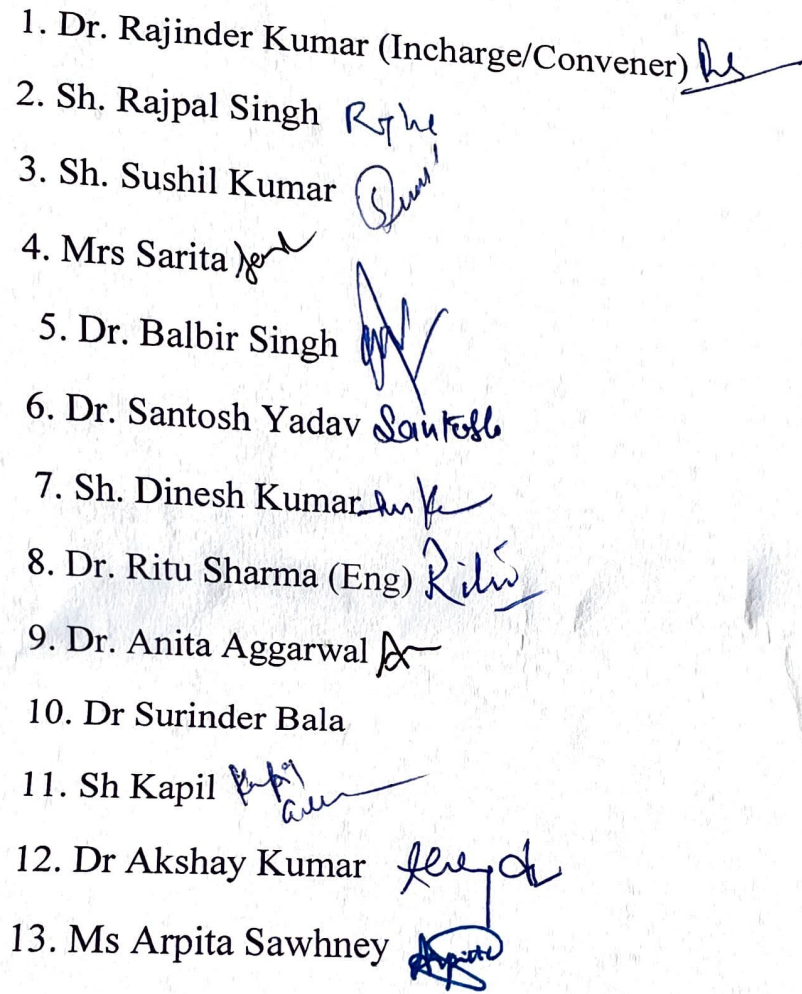 1. Dr. Rajinder Kumar (Incharge/Convener)
2. Sh. Rajpal Singh
3. Sh. Sushil Kumar
4. Mrs Sarita
5. Dr. Balbir Singh
6. Dr. Santosh Yadav Santosh
7. Sh. Dinesh Kumar
8. Dr. Ritu Sharma (Eng) Ritu
9. Dr. Anita Aggarwal
10. Dr Surinder Bala
11. Sh Kapil
12. Dr Akshay Kumar
13. Ms Arpita Sawhney